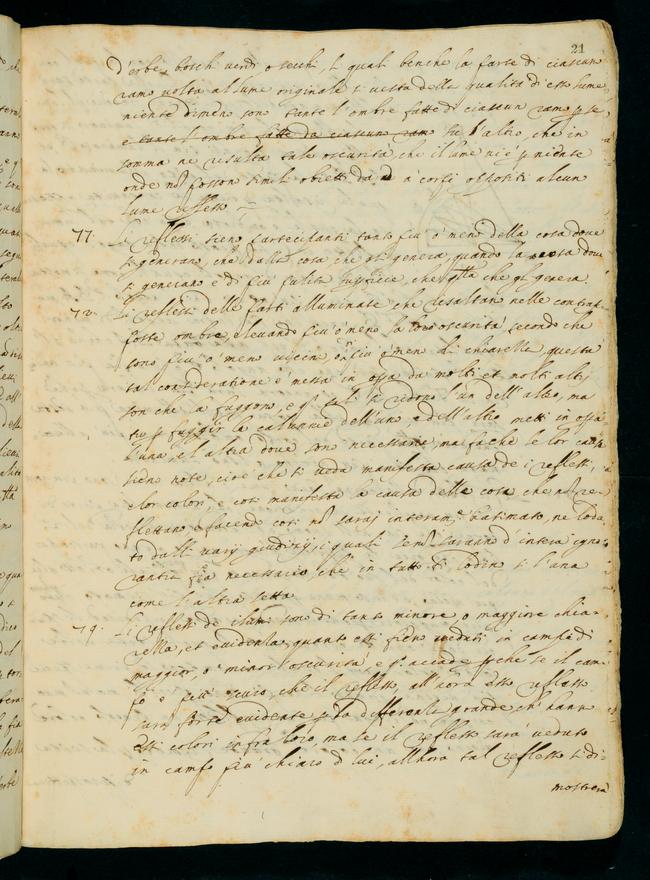 21
d'erbe, boschi verdi o secchi, li quali benche la parte di ciascun
ramo volta al lume originale si vesta della qualità di esso lume
niente dimeno sono tante l'ombre fatte di ciascun ramo p se
e tante l'ombre fatte da ciascuno ramo su l'altro, che in
somma ne risulta tale oscurità, che il lume ni è p nidate
onde nõ posson simili obietti da à corpi oppositi alcun
lume reflesso
77. Li reflessi sieno partecipanti tanto più o meno della cosa dove
si generano, che della cosa che gli genera, quando la cosa dove
si generano è di più pulita superficie, che qlla che gli genera.
78. Li reflessi delle parti alluminate che risaltano nelle contrap-
poste ombre, elevando più o meno la loro oscurità secondo che
sono più o meno vicini con più o men di chiarezza, questa
tal consideratione è messa in opra da molti et molti altri
son che la fuggono, e qsti tali si ridono l'un dell'altro, ma
tu p fuggir le callunnie dell'uno, e dell'altro metti in opra
l'una, et l'altra dove sono necessarie, ma fa che le lor cause
sieno note, cioè che si veda manifesta causa de i reflessi,
e lor colori, e così manifesta la causa delle cose che nõ re-
flettano e facendo così nõ sarai interam.e biasimato, ne loda-
to dalli varij giudizij, i quali se nõ saranno d'intera igno-
rantia fia necessario che in tutto ti lodin si l'una
come l'altra setta
79. Li reflessi de i lumi sono di tanto minore o maggiore chia-
rezza, et evidenza, quanto essi fieno veduti in campi di
maggior, o minor oscurità, e qsto accade p che se il cam-
po è più scuro, che il reflesso, all'hora esso reflesso
sarà forte evidente p la differenza grande ch'hanno
essi colori infra loro, ma se il reflesso sarà veduto
in campo più chiaro di lui, all'hora tal reflesso si di-
mostrerà